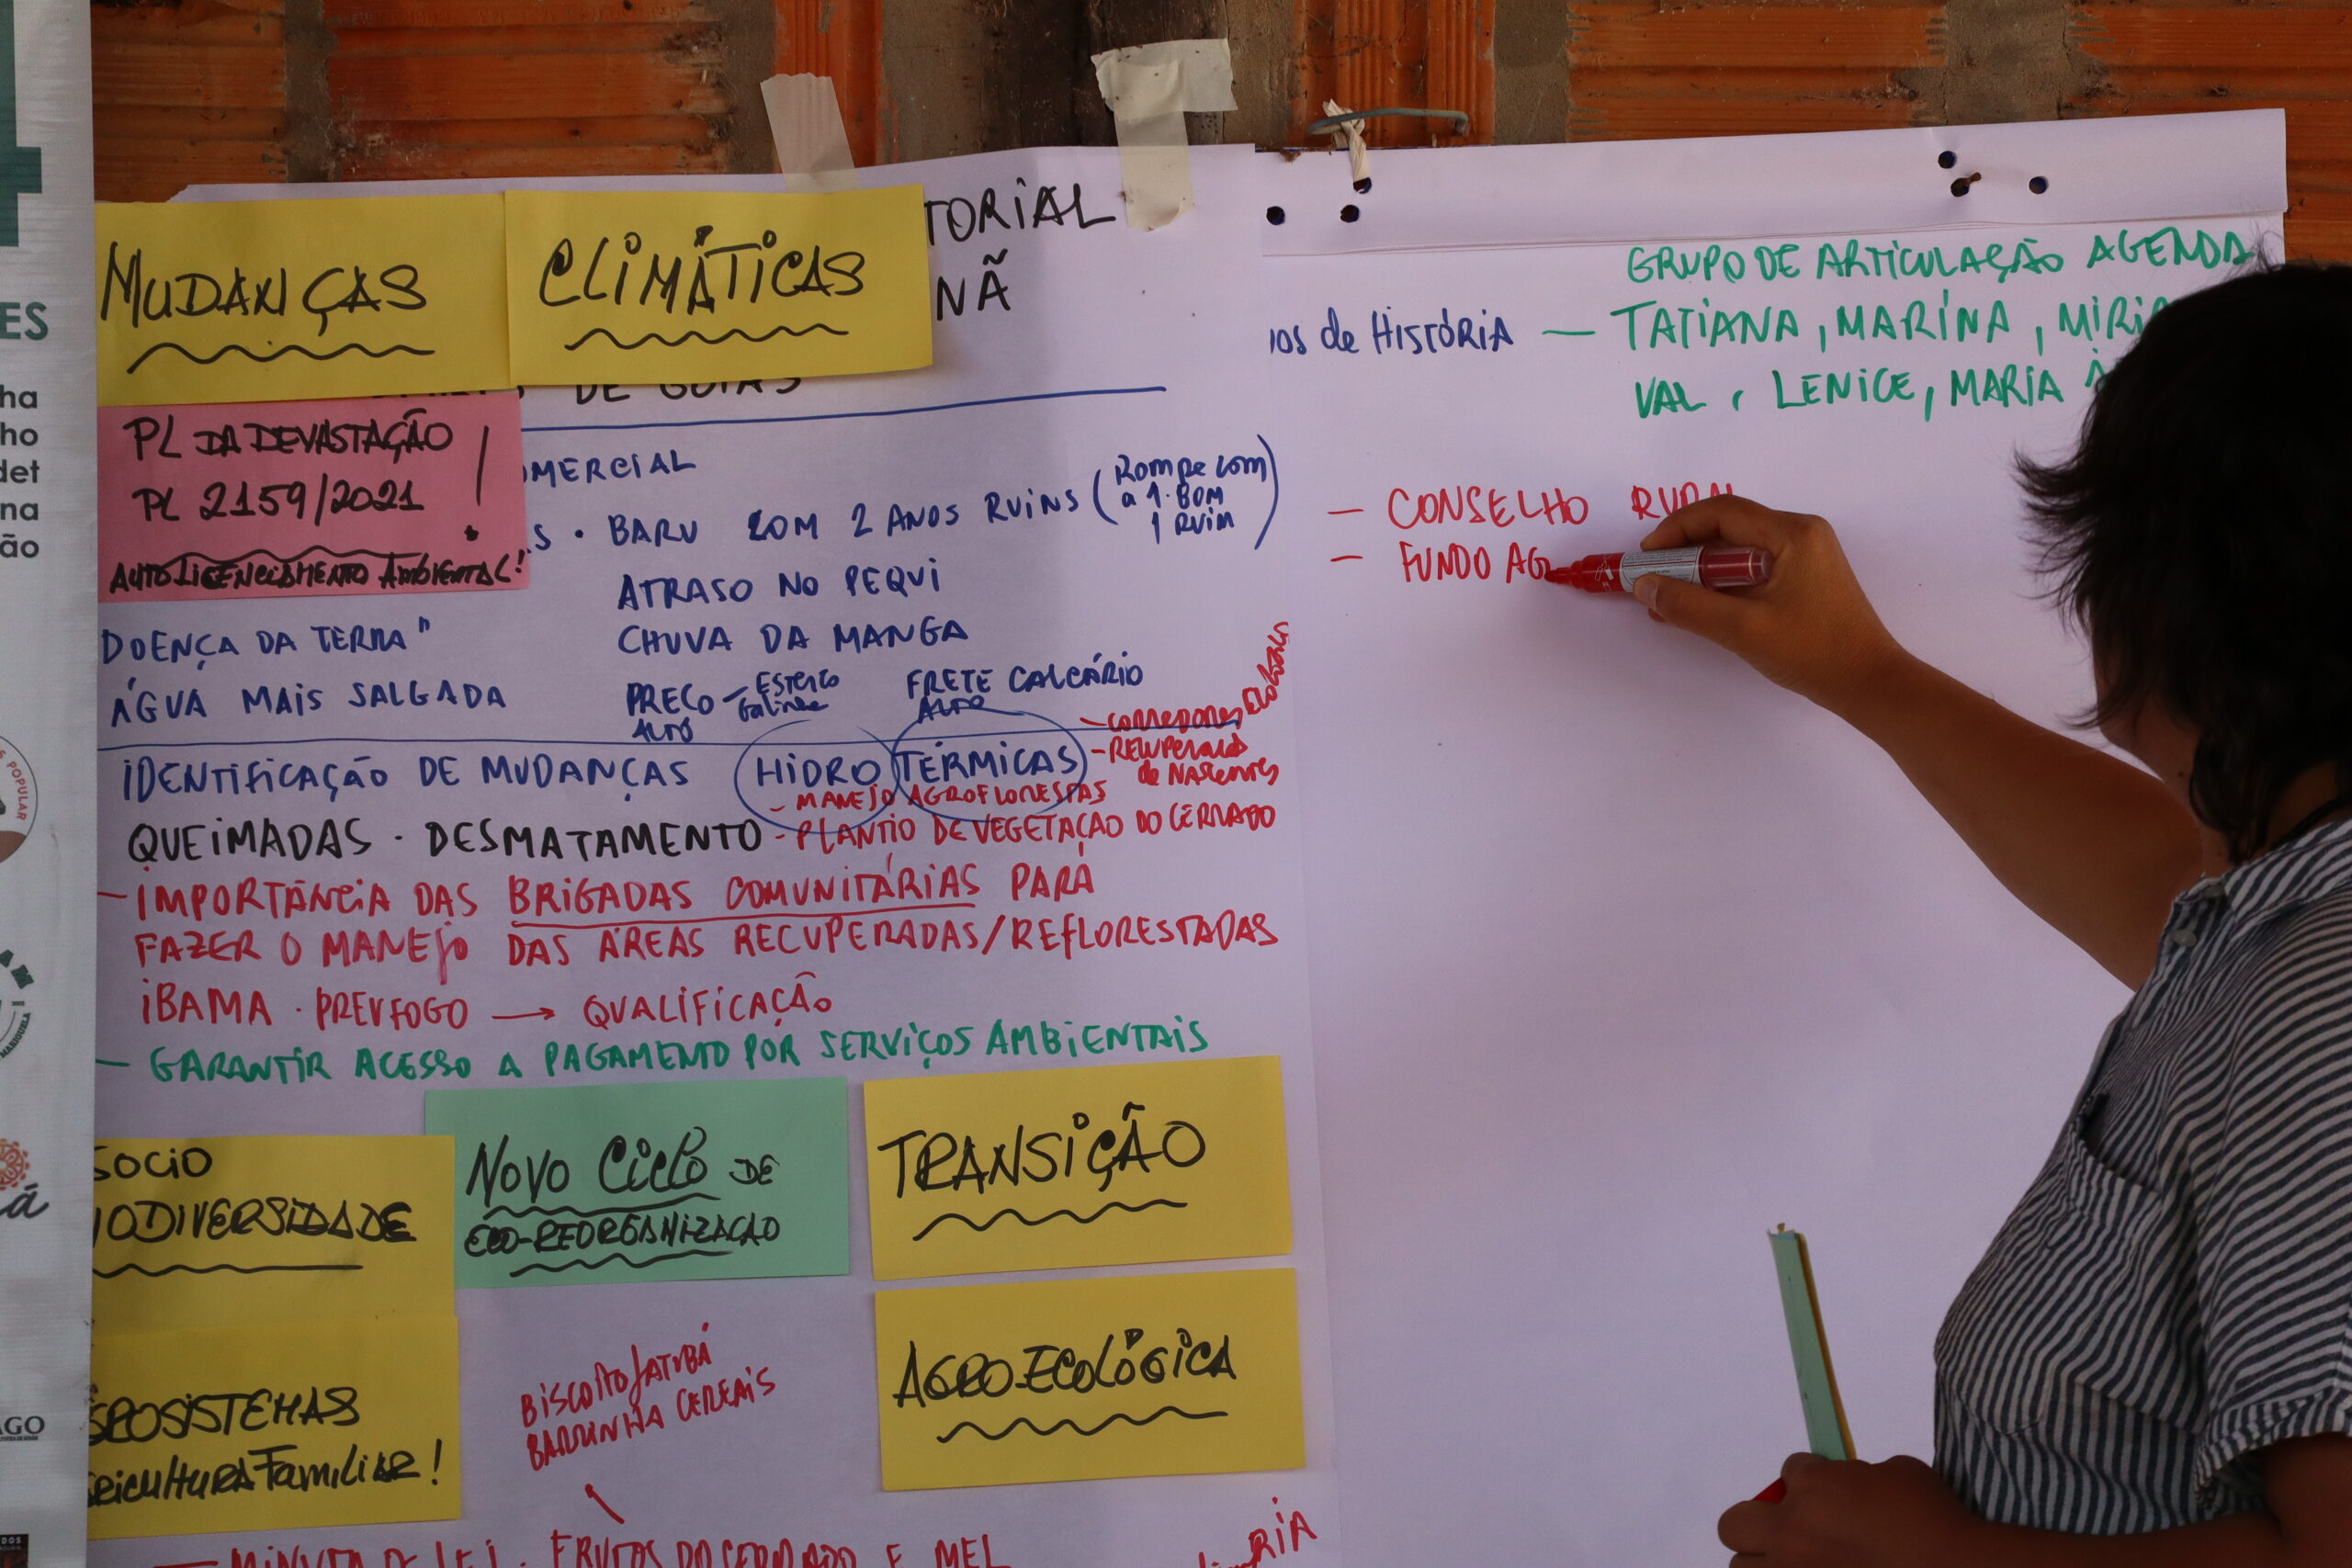 4
ES
ha
ho
det
na
ão
POPULAR
MARIGUELA
AGO
MUDANÇAS
CLIMÁTICAS
TORIAL
NÃ
DE GOIÁS
PL DA DEVASTAÇÃO
PL 2159/2021
!
AUTOLICENCIAMENTO AMBIENTAL!
OMERCIAL
S • BARU COM 2 ANOS RUINS (Rompe com
a 1 BOM
1 RUIM)
ATRASO NO PEQUI
DOENÇA DA TERRA"
CHUVA DA MANGA
ÁGUA MAIS SALGADA
PREÇO - ESTERCO
Galinha
ALTO
FRETE CALCÁRIO
ALTO
- CORREDORES ECOLÓGICOS
IDENTIFICAÇÃO DE MUDANÇAS HIDRO TÉRMICAS
- RECUPERAÇÃO
de NASCENTES
- MANEJO AGROFLORESTAS
QUEIMADAS • DESMATAMENTO - PLANTIO DE VEGETAÇÃO DO CERRADO
- IMPORTÂNCIA DAS BRIGADAS COMUNITÁRIAS PARA
FAZER O MANEJO DAS ÁREAS RECUPERADAS/REFLORESTADAS
IBAMA • PREVFOGO → QUALIFICAÇÃO
- GARANTIR ACESSO A PAGAMENTO POR SERVIÇOS AMBIENTAIS
SOCIO
IODIVERSIDADE
NOVO CICLO DE
ECO-REORGANIZAÇAO
TRANSIÇÃO
AGRO-ECOLÓGICA
ROSSISTEMAS
RICULTURA Familiar!
BISCOITO JATOBÁ
BARRINHA CEREAIS
- MINUTA DE LEI • FRUTOS DO CERRADO E MEL
RIA
GRUPO DE ARTICULAÇÃO AGENDA
IOS de HISTÓRIA — TATIANA, MARINA, MIRIA
VAL, LENICE, MARIA
- CONSELHO RURAL
- FUNDO AG